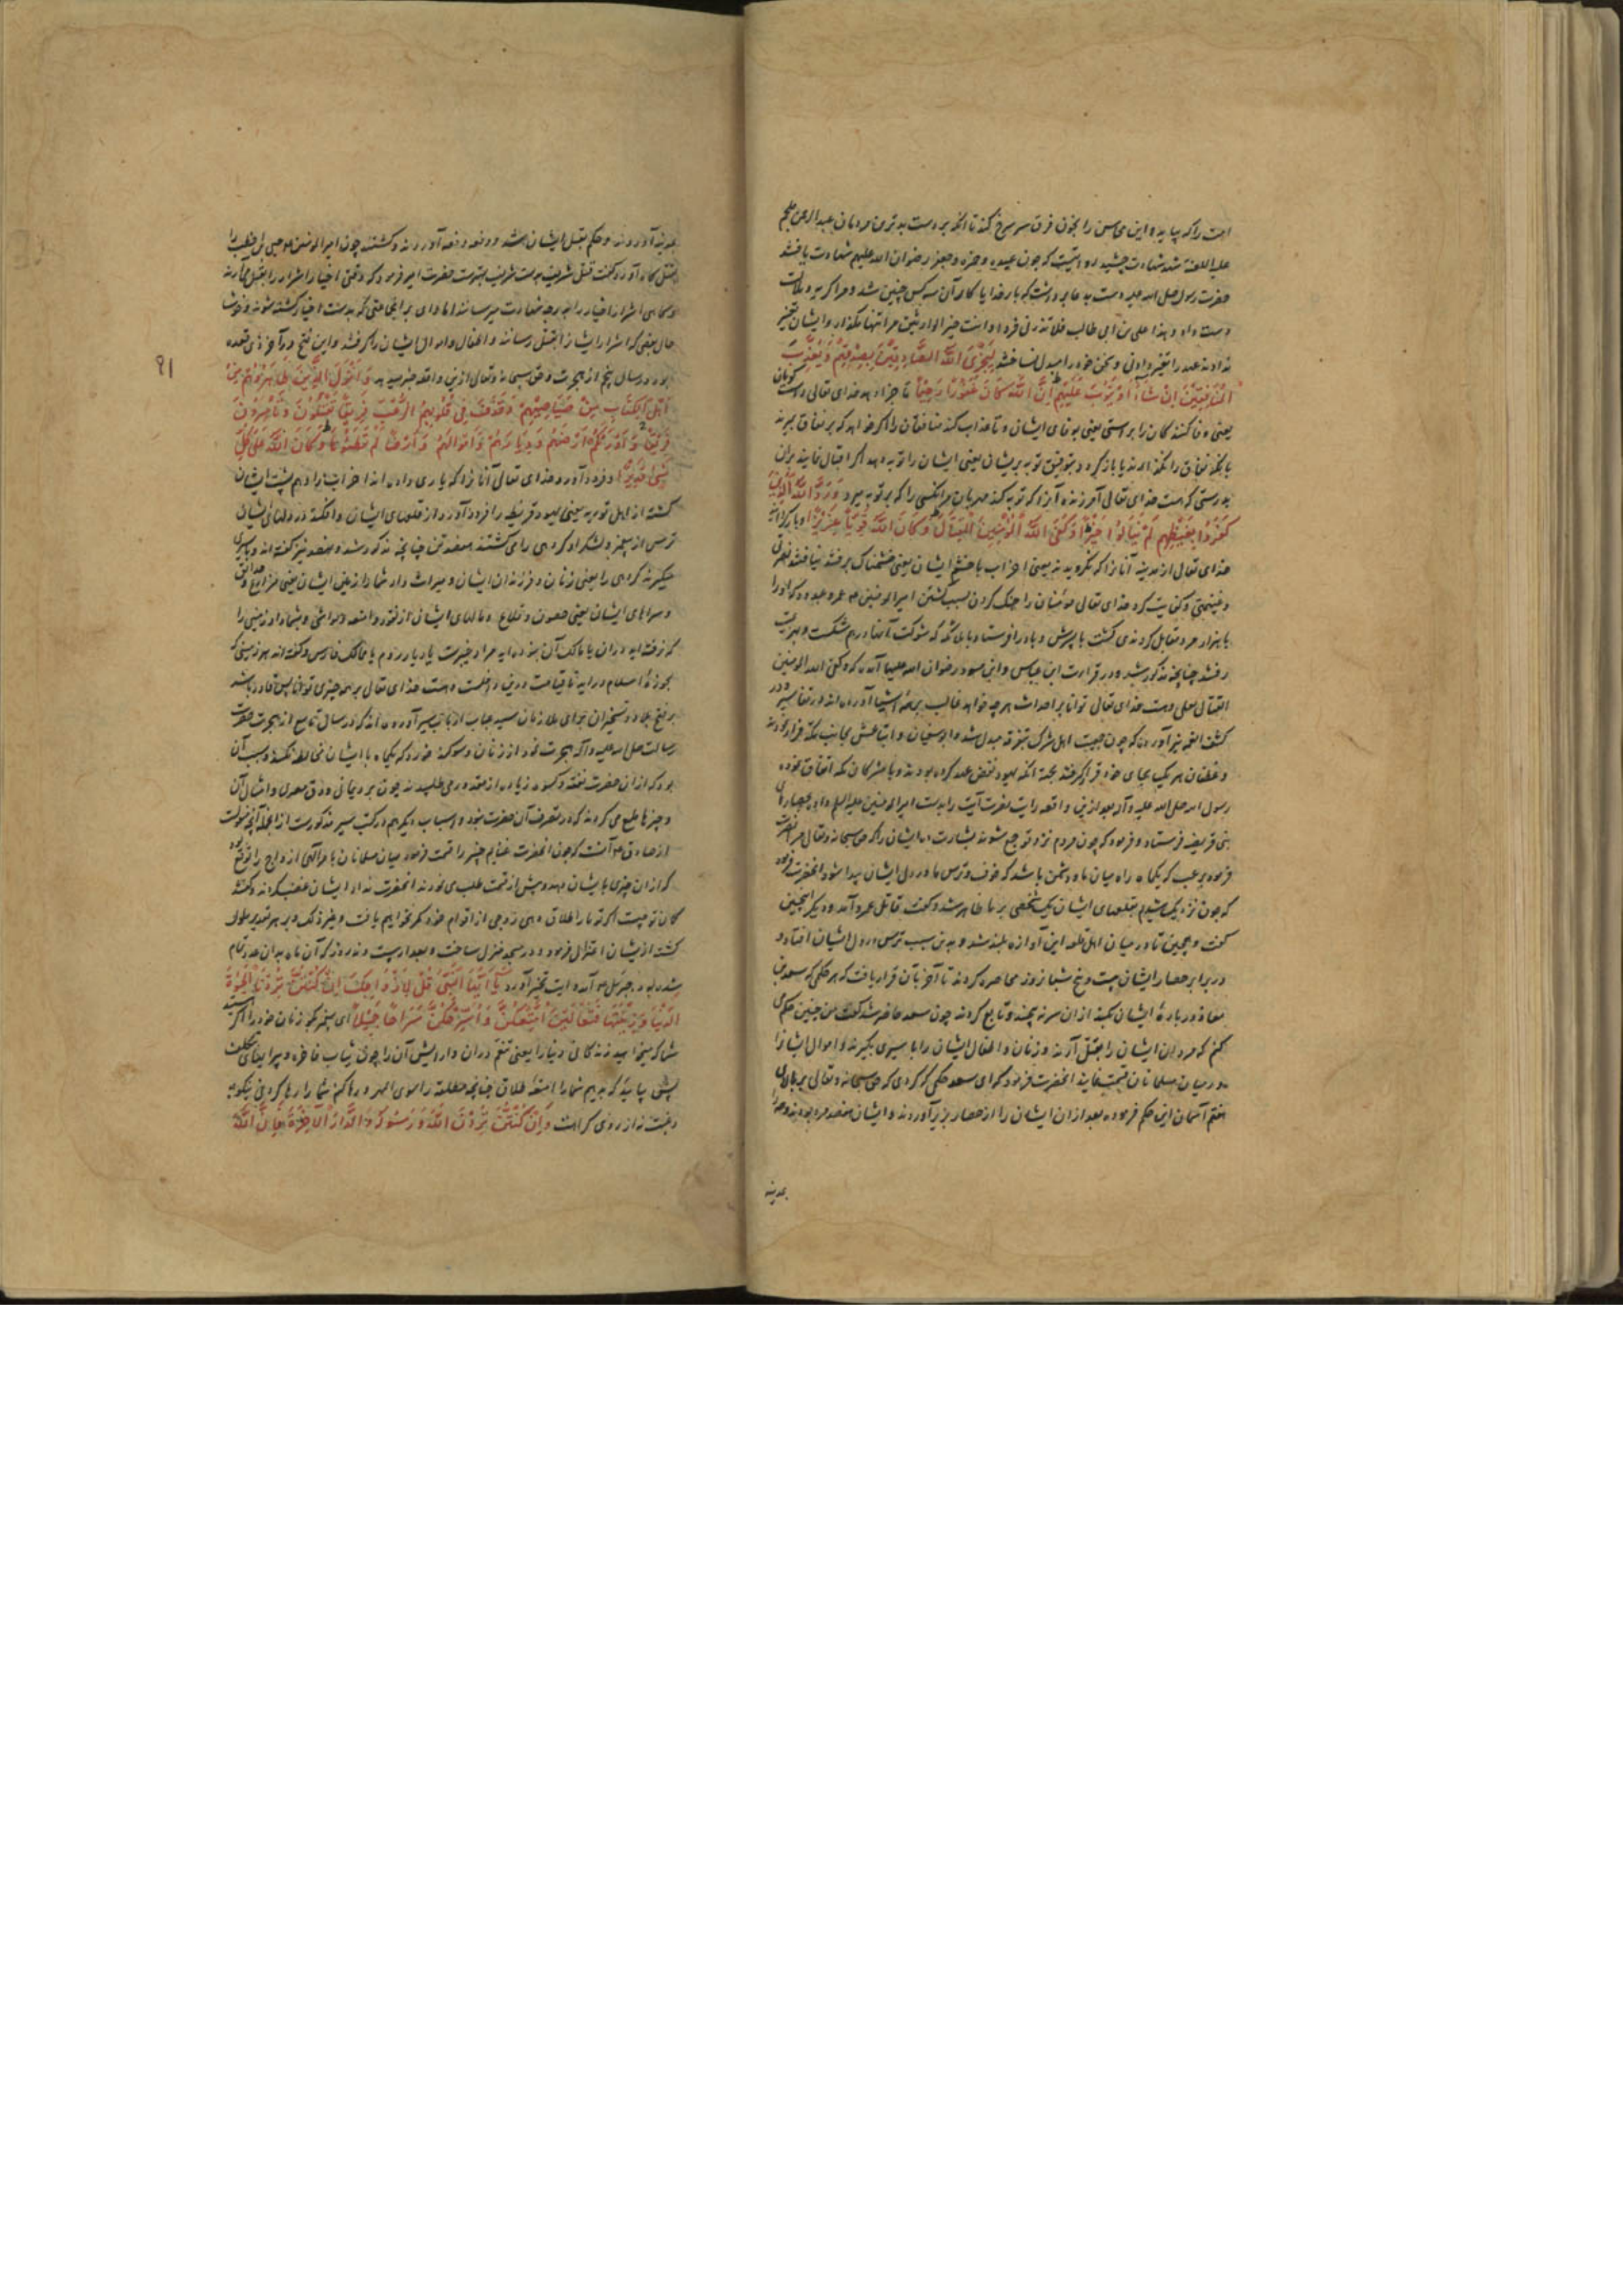 امت را که بیاید و این محاسن را بخون فرق سر سرخ کند تا آنکه بر دست بدترین مردمان عبدالرحمن ملجم
علیه اللعنة شربت شهادت چشید و چون عبیده و حمزه و جعفر رضوان الله علیهم شهادت یافتند
حضرت رسول صلی الله علیه دست بدعا برداشت که بارخدایا کار آن سه کس چنین شد و مرا
و هذا علی بن ابی طالب فلا تذرنی فردا و انت خیر الوارثین مرا تنها مگذار و ایشان تغییر
ندادند عهد را تغییر دادنی و سخن خود را مبدل نساختند لِيَجْزِيَ اللَّهُ الصَّادِقِينَ بِصِدْقِهِمْ وَيُعَذِّبَ
الْمُنَافِقِينَ إِنْ شَاءَ أَوْ يَتُوبَ عَلَيْهِمْ إِنَّ اللَّهَ كَانَ غَفُورًا رَحِيمًا تا جزا دهد خدای تعالی راست گویان
یعنی وفا کنندگان را براستی یعنی بوفای ایشان و تا عذاب کند منافقان را اگر خواهد که بر نفاق میرند
یا بلکه نفاق را بگذارند یا باز گردد بتوفیق توبه بر ایشان یعنی ایشان را توبه دهد اگر اقبال نمایند بران
بدرستی که هست خدای تعالی آمرزنده آنرا که توبه کند مهربان مر آنکسی را که بر توبه میرد وَرَدَّ اللَّهُ الَّذِينَ
كَفَرُوا بِغَيْظِهِمْ لَمْ يَنَالُوا خَيْرًا وَكَفَى اللَّهُ الْمُؤْمِنِينَ الْقِتَالَ وَكَانَ اللَّهُ قَوِيًّا عَزِيزًا و باز گردانید
خدای تعالی از مدینه آنانرا که نگرویدند یعنی احزاب با خشم ایشان یعنی خشمناک برفتند نیافتند نصرتی
و غنیمتی و کفایت کرد خدای تعالی مؤمنان را جنک کردن بسبب کشتن امیرالمؤمنین عمرو عبدود که او را
با هزار مرد مقابل کردندی کشت با پسرش و باد را فرستاد و با ملائکه که شوکت آنها درهم شکست و بهزیمت
رفتند چنانچه مذکور شد و در قراءت ابن عباس و ابن مسعود رضوان الله علیهما آمده که وکفی الله المؤمنین
القتال بعلی و هست خدای تعالی توانا بر احداث هرچه خواهد غالب بر همه اشیا آورده اند در تفاسیر و در
کشف الغمه نیز آورده که چون جمعیت اهل شرک بتفرقه مبدل شد و ابوسفیان و اتباعش بجانب مکه فرار نمودند
و غطفان هر یک بجای خود قرار گرفتند بجهة آنکه یهود نقض عهد کرده بودند و با مشرکان مکه اتفاق نموده
رسول الله صلی الله علیه و آله بعد ازین واقعه رایت نصرت آیت را بدست امیرالمؤمنین علیه السلم داد بحصار
بنی قریضه فرستاد و فرمود که چون مردم نزد تو جمع شوند بشارت ده ایشان را که حق سبحانه و تعالی مرا نصرت
فرموده برعب که یکماه راه میان ما و دشمن باشد که خوف و ترس ما در دل ایشان پیدا شود آنحضرت فرمود
که چون نزدیک رسیدم بقلعهای ایشان یک شخصی بر ما ظاهر شد و گفت قاتل عمرو آمد و دیگر همچنین
گفت و همچنین تا در میان اهل قلعه این آوازه بلند شد و بدین سبب ترس در دل ایشان افتاد و
در برابر حصار ایشان بیست و پنج شبانروز محاصره کردند تا آخر بآن قرار یافت که هر حکمی که سعد بن
معاذ در بارهٔ ایشان بکند از آن سر نه پیچند و تابع گردند چون سعد حاضر شد گفت من چنین حکم
کنم که مردان ایشان را بقتل آرند و زنان و اطفال ایشان را باسیری بگیرند و اموال ایشان را
در میان مسلمانان قسمت نمایند آنحضرت فرمود که ای سعد حکمی کردی که حق سبحانه و تعالی بر بالای
هفتم آسمان این حکم فرموده بعد از ان ایشان را از حصار بزیر آوردند و ایشان هفتصد مرد بودند
بمدینه
بمدینه آوردند و حکم بقتل ایشان شد و دفعه دفعه آوردند و کشتند چون امیرالمؤمنین حی بن اخطب را
بقتل گاه آورد گفت قتل شریف بدست شریف حضرت امیر فرمود که وقتی اخیار اشرار را بقتل می آرند
و گاهی اشرار اخیار را بدرجه شهادت میرسانند اما وای بر آنجماعتی که بدست اخیار کشته شوند و خوشا
حال بعضی که اشرار ایشان را بقتل رسانند و اطفال و اموال ایشان را گرفتند و این فتح در آخر ذی قعده
بود در سال پنجم از هجرت و حق سبحانه و تعالی از این واقعه خبر میدهد وَأَنْزَلَ الَّذِينَ ظَاهَرُوهُمْ مِنْ
أَهْلِ الْكِتَابِ مِنْ صَيَاصِيهِمْ وَقَذَفَ فِي قُلُوبِهِمُ الرُّعْبَ فَرِيقًا تَقْتُلُونَ وَتَأْسِرُونَ
فَرِيقًا وَأَوْرَثَكُمْ أَرْضَهُمْ وَدِيَارَهُمْ وَأَمْوَالَهُمْ وَأَرْضًا لَمْ تَطَئُوهَا وَكَانَ اللَّهُ عَلَى كُلِّ
شَيْءٍ قَدِيرًا و فرود آورد خدای تعالی آنانرا که یاری دادند احزاب را و هم پشت ایشان
گشتند از اهل توریه یعنی یهود قریظه را فرود آورد از قلعهای ایشان و افکند در دلهای ایشان
ترس از پیغمبر و لشکر او گروهی را می کشتند هفتصد تن چنانچه مذکور شد و نهصد نیز گفته اند و باسیری
میگیرند گروهی را یعنی زنان و فرزندان ایشان و میراث داد شما را زمین ایشان یعنی مزارع و حدایق
و سراهای ایشان یعنی حصون و قلاع و مالهای ایشان از نقود و امتعه و مواشی و بشما داد زمینی را
که نرفته اید در ان یا مالک آن نبوده اید مراد خیبرست یا دیار روم یا ممالک فارس و گفته اند هر زمینی که
بحوزهٔ اسلام در آید تا قیامت درین داخلست و هست خدای تعالی بر همه چیزی توانا پس قادر باشد
بر فتح بلاد و تسخیر آن برای ملازمان سید جناب ارباب سیر آورده اند که در سال تاسع از هجرت حضرت
رسالت صلی الله علیه و آله هجرت نمود از زنان و سوگند خورد که یکماه با ایشان مخالطه نکند و سبب آن
بود که از آن حضرت نفقه و کسوه زیاده از مقدور می طلبیدند چون برد یمانی و دق مصری و امثال آن
و چیزها طمع می کردند که در تصرف آن حضرت نبود و اسباب دیگر هم در کتب سیر مذکورست از انجمله آنچه منقولست
از صادق آنست که چون آنحضرت غنایم خیبر را قسمت فرمود میان مسلمانان بامر الهی ازواج را توقع بود
که از ان چیزی بایشان دهد و پیش از قسمت طلب می نمودند آنحضرت نداد ایشان غضب کردند و گفتند
گمان تو چیست اگر تو ما را طلاق دهی زوجی از اقوام خود مگر نخواهیم یافت و غیر ذلک و بر هر تقدیر ملول
گشته از ایشان اعتزال فرمود و در مسجد منزل ساخت و بعد از بیست و نه روز که آن ماه بدان عدد تمام
شده بود جبرئیل آمد و آیت تخییر آورد يَا أَيُّهَا النَّبِيُّ قُلْ لِأَزْوَاجِكَ إِنْ كُنْتُنَّ تُرِدْنَ الْحَيَوةَ
الدُّنْيَا وَزِينَتَهَا فَتَعَالَيْنَ أُمَتِّعْكُنَّ وَأُسَرِّحْكُنَّ سَرَاحًا جَمِيلًا ای پیغمبر بگو زنان خود را اگر هستید
شما که میخواهید زندگانی دنیا را یعنی تنعم در ان و آرایش آن را چون ثیاب فاخره و پیرایهای بتکلف
پس بیایید که بدهیم شما را متعه طلاق چنانچه مطلقه را سوی المهر و رها کنم شما را رها کردنی نیکو به
رغبت نه از روی کراهت وَإِنْ كُنْتُنَّ تُرِدْنَ اللَّهَ وَرَسُولَهُ وَالدَّارَ الْآخِرَةَ فَإِنَّ اللَّهَ
۹۱